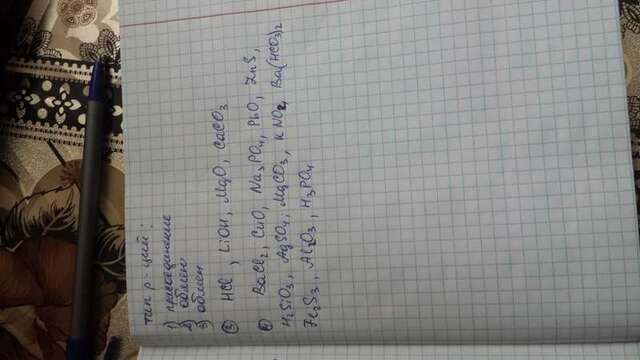 тип р-ций:
1) присоединение
2) обмен
3) обмен
③ HCl, LiOH, MgO, CaCO3
BaCl2, CuO, Na3PO4, PbO, ZnS,
H2SiO3, AgSO4, MgCO3, KNO2, Ba(HCO3)2
Fe2S3, Al2O3, H3PO4